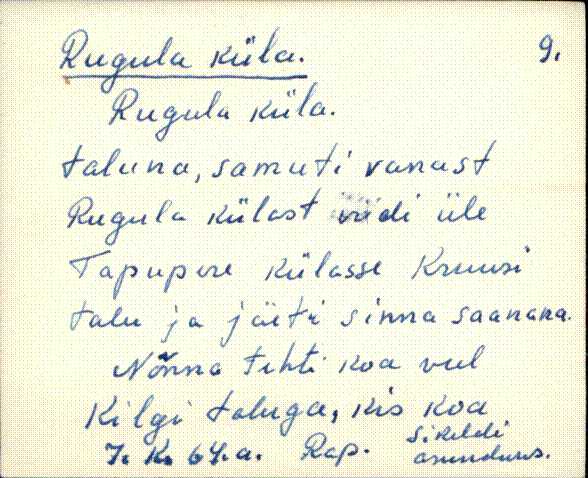 Rugula küla. 9.
Rugula küla.
taluna, samuti vanast
Rugula külast viidi üle
Tapupere külasse Kruusi
talu ja jäeti sinna saanana.
Nõnna tehti koa veel
Kilgi taluga, kis koa
J. K. 64. a. Rap. Sikeldi
asunduus.